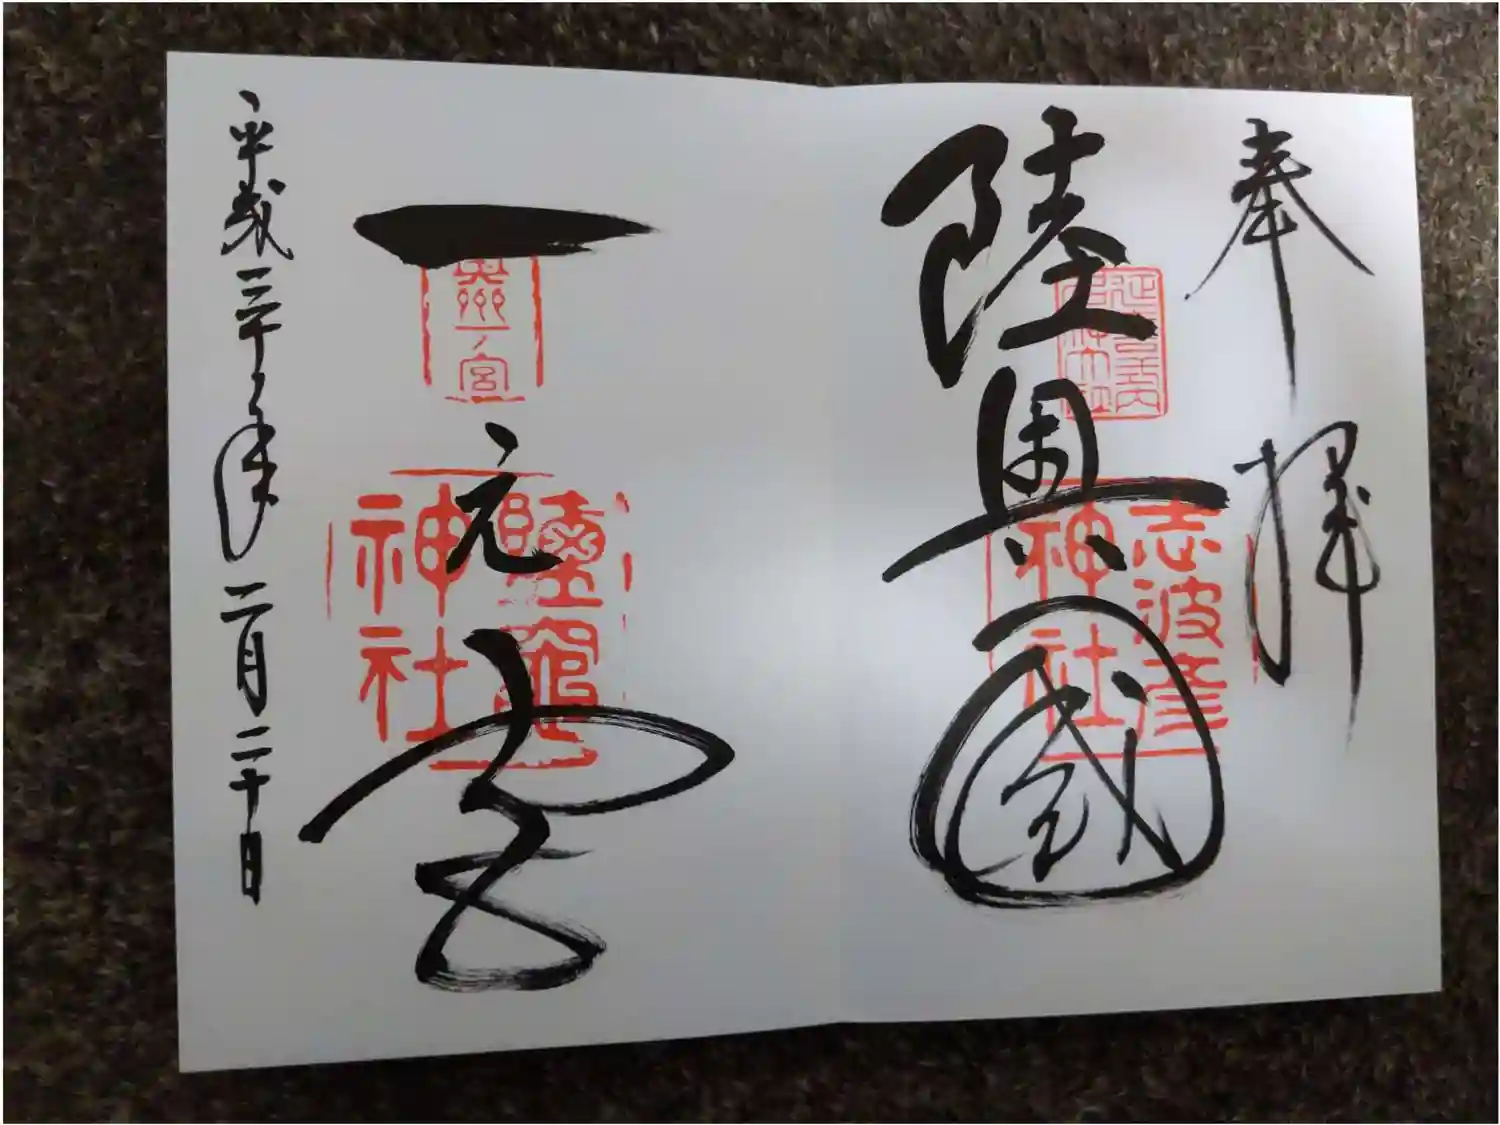 奉拝
陸奥國
延喜式内
名神大社
志波彦
神社
一之宮
奥州一ノ宮
鹽竈
神社
平成三十年二月二十日